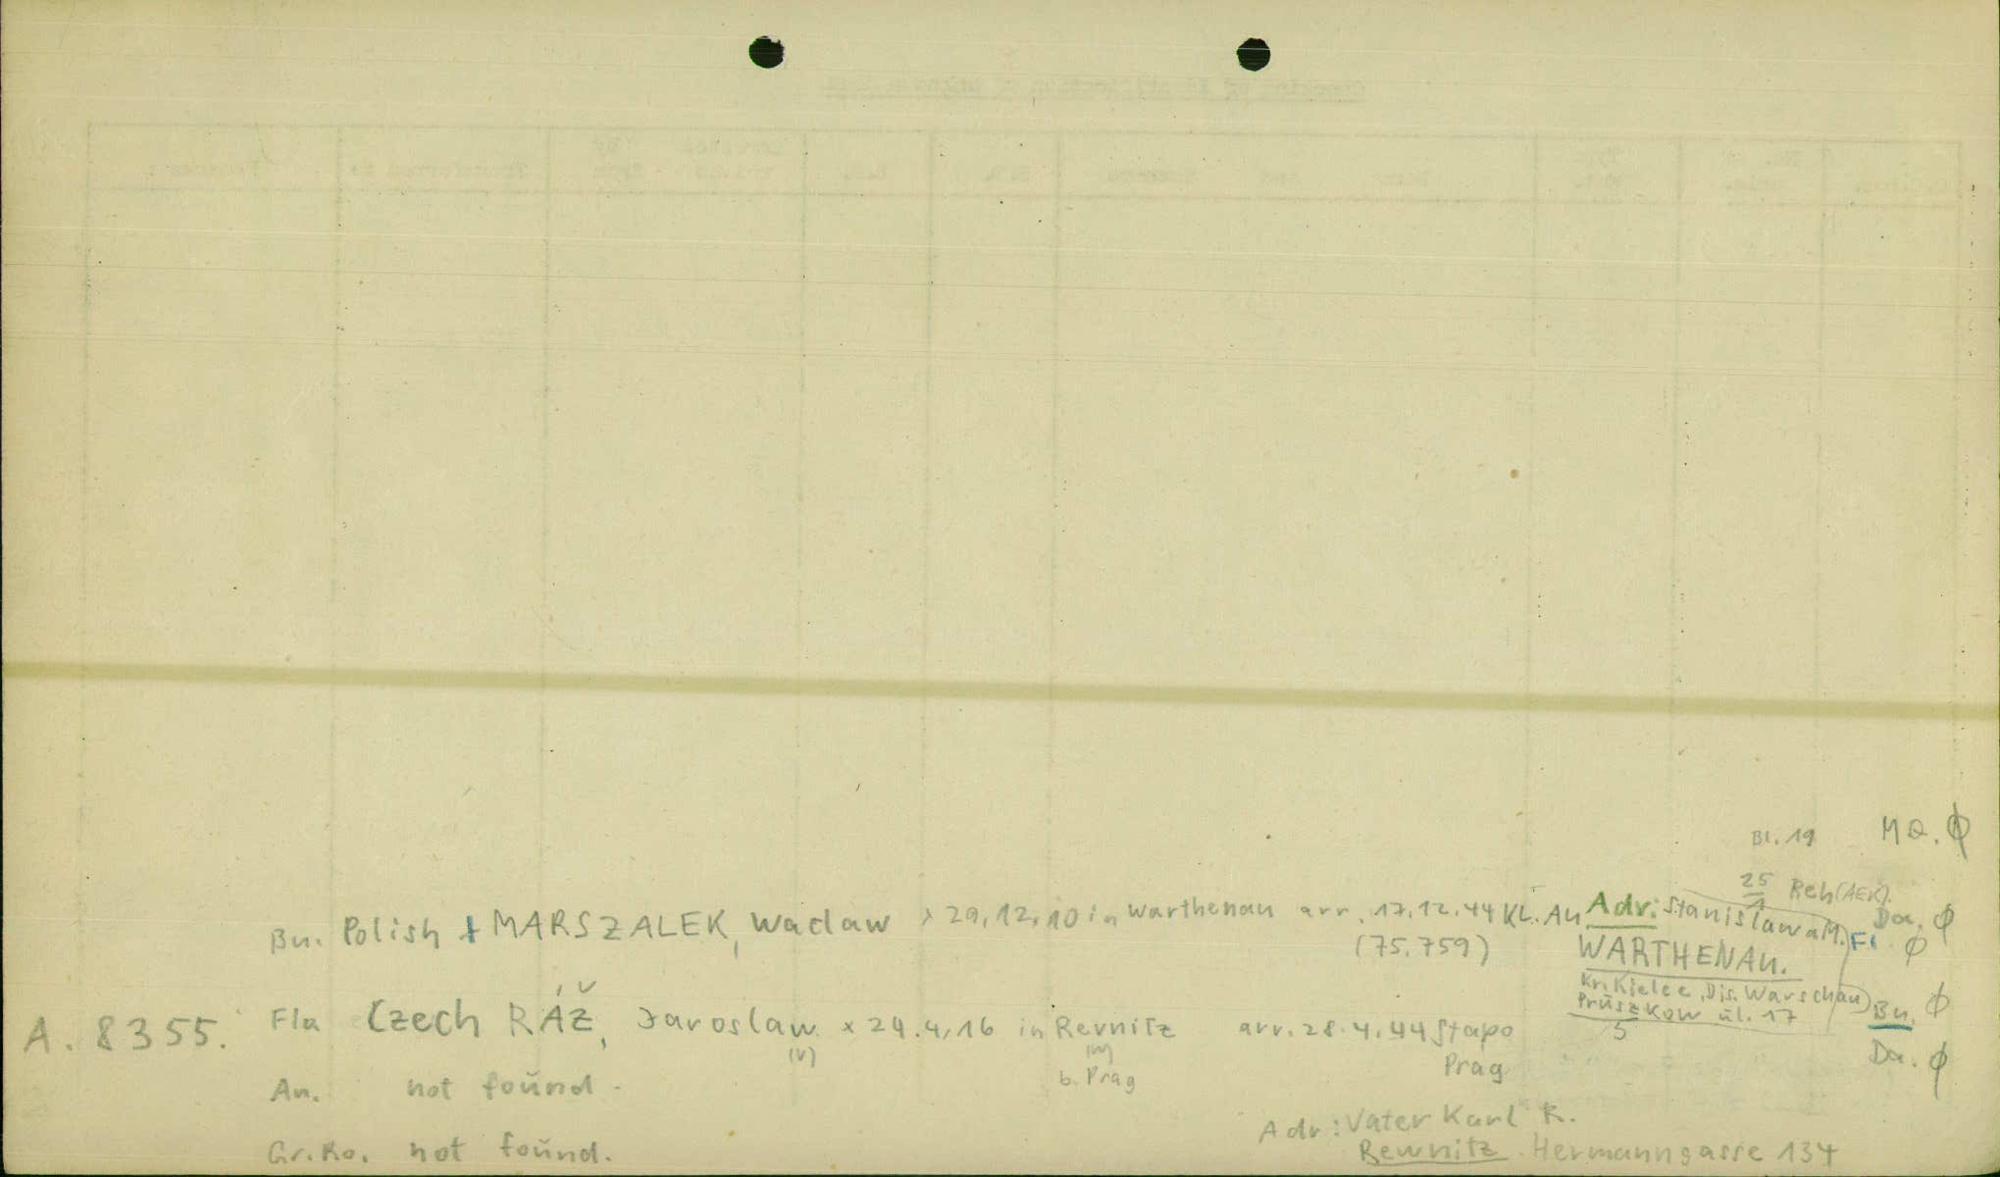 Bl. 19 MQ. ϕ
25/1 Reh(AEK).
Bu. Polish + MARSZALEK, Waclaw x 29.12.10 in Warthenau arr. 17.12.44 KL. Au Adr: Stanislawa M. Da. ϕ
(75.759) WARTHENAU. Fl ϕ
Kr. Kielce, Dis. Warschau) Bu. ϕ
Pruszkow ul. 17
5
A. 8355. Fla Czech RÁŽ, Jaroslaw x 24.4.16 in Revnitz arr. 28.4.44 Stapo
(v) (w) Prag Da. ϕ
b. Prag
An. not found.
Adr: Vater Karl R.
Gr. Ro. not found. Rewnitz Hermanngasse 134